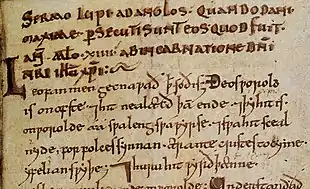 SERMO LUPI AD ANGLOS· QUANDO DANI
MAXIME P̲SECUTI SUNT EOS QUOD FUIT·
AN̄· M̄LO· XIIII· AB INCARNATIONE DN̄I
NRI IHU XPI·
Leofan men gecnaƿað þ̄ soð is· Ðeos ƿorold
is on ofste. ⁊ hit nealæcð þā ende. ⁊ þy hit is
on ƿorolde aa sƿa leng sƿa ƿyrse. ⁊ sƿa hit sceal
nyde, for folces synnan
yfelian sƿyþe. ⁊ huru hit ƿyrð þænne
ƿorolde· Understandað